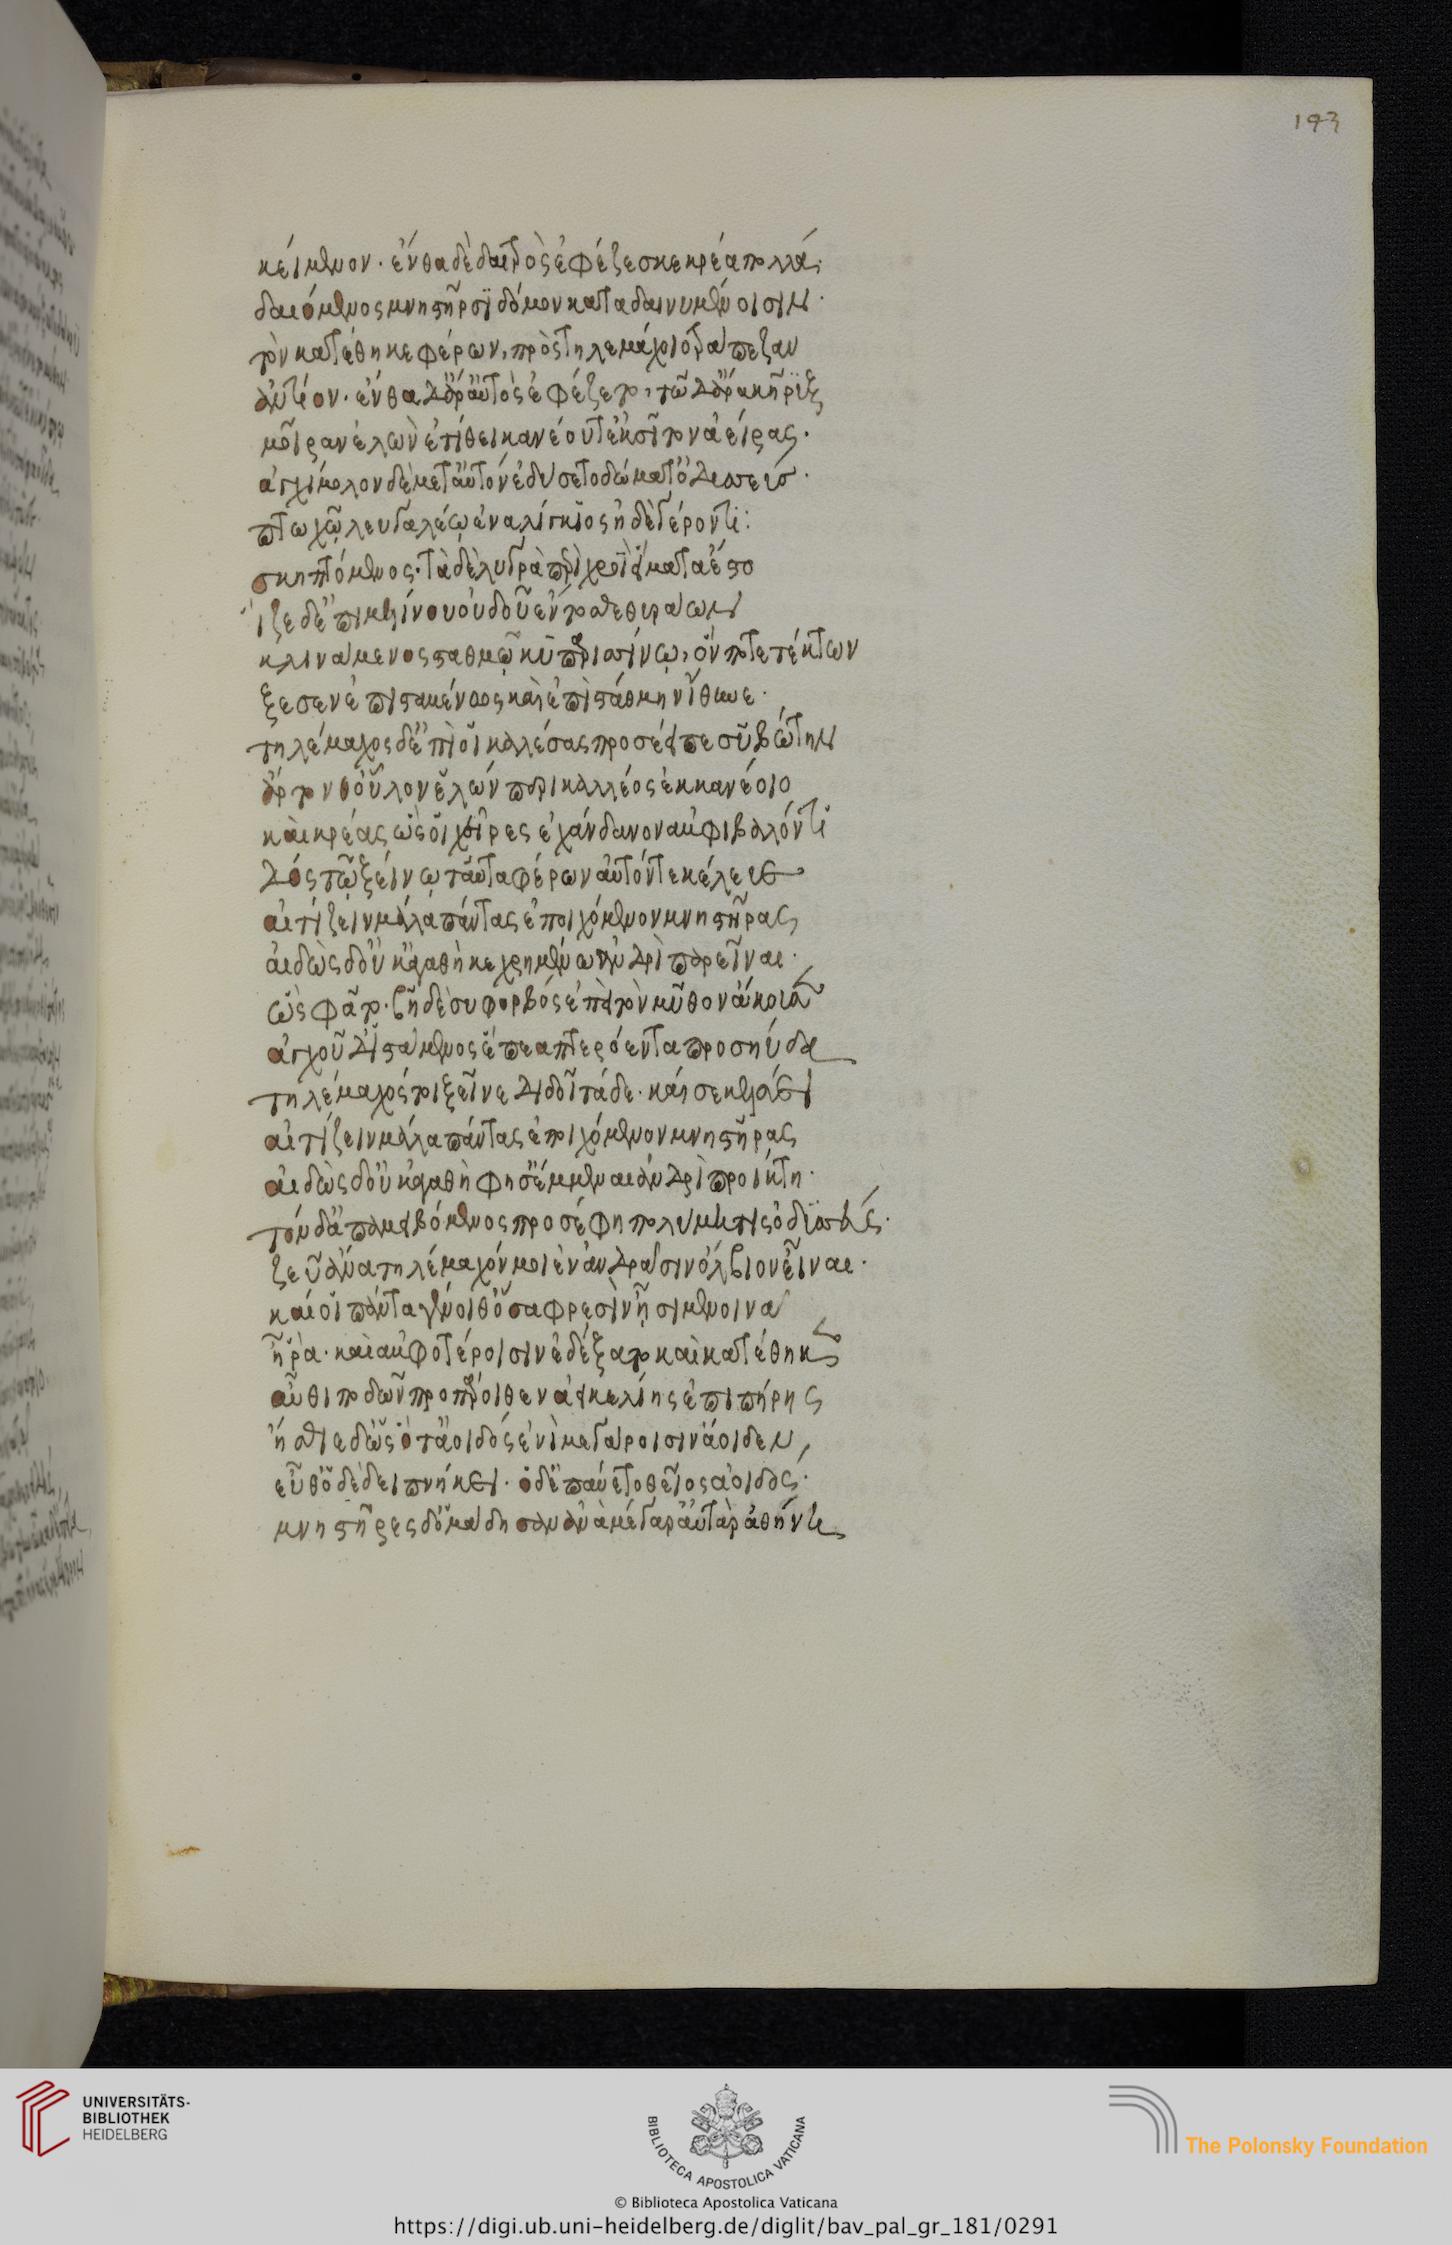 193
κείμενον· ἔνθα δὲ δαιτρὸς ἐφέζεσκε κρέα πολλὰ
δαιόμενος μνηστῆρσι δόμον κάτα δαινυμένοισιν·
τὸν κατέθηκε φέρων, πρὸς τηλεμάχοιο τράπεζαν
ἀντίον· ἔνθα δ' ἄρ' αὐτὸς ἐφέζετο, τῶ δ' ἄρα κῆρυξ
μοῖραν ἑλὼν ἐτίθει κανέου τ' ἐκ σῖτον ἀείρας·
ἀγχίμολον δὲ μετ' αὐτὸν ἐδύσετο δώματ' ὀδυσσεύς·
πτωχῷ λευγαλέῳ ἐναλίγκιος ἠδὲ γέροντι:
σκηπτόμενος· τὰ δὲ λυγρὰ περὶ χροῒ εἵματα ἕστο
ἷζε δ' ἐπὶ μελίνου οὐδοῦ ἔντοσθε θυράων
κλινάμενος σταθμῷ κυπαρισσίνῳ, ὅν ποτε τέκτων
ξέσεν ἐπισταμένως καὶ ἐπὶ στάθμην ἴθυνε·
τηλέμαχος δ' ἐπὶ οἷ καλέσας προσέειπε συβώτην
ἄρτον τ' οὖλον ἑλὼν περικαλλέος ἐκ κανέοιο
καὶ κρέας ὥς οἱ χεῖρες ἐχάνδανον ἀμφιβαλόντι
δὸς τῷ ξείνῳ ταῦτα φέρων αὐτόν τε κέλευε
αἰτίζειν μάλα πάντας ἐποιχόμενον μνηστῆρας
αἰδὼς δ' οὐκ ἀγαθὴ κεχρημένω ἀνδρὶ παρεῖναι·
ὣς φάτο· βῆ δὲ συφορβὸς ἐπεὶ τὸν μῦθον ἄκουσεν
ἀγχοῦ δ' ἱστάμενος ἔπεα πτερόεντα προσηύδα
τηλέμαχός τοι ξεῖνε διδοῖ τάδε· καί σε κελεύει
αἰτίζειν μάλα πάντας ἐποιχόμενον μνηστῆρας
αἰδὼς δ' οὐκ ἀγαθὴ φησ' ἔμμεναι ἀνδρὶ προίκτη·
τὸν δ' ἀπαμειβόμενος προσέφη πολύμητις ὀδυσσεύς·
ζεῦ ἄνα τηλέμαχόν μοι ἐν ἀνδράσιν ὄλβιον εἶναι·
καί οἱ πάντα γένοιθ' ὅσα φρεσὶν ᾗσι μενοινᾷ
ἦ ῥα· καὶ ἀμφοτέροισιν ἐδέξατο καὶ κατέθηκεν
αὖθι ποδῶν προπάροιθεν ἀεικελίης ἐπὶ πήρης
ἤσθιε δ' ὡς ὅτ' ἀοιδὸς ἐνὶ μεγάροισιν ἄοιδεν,
εὖθ' ὁ δεδειπνήκει· ὁ δ' ἐπαύετο θεῖος ἀοιδός·
μνηστῆρες δ' ὁμάδησαν ἀνὰ μέγαρ' αὐτὰρ ἀθήνη
UNIVERSITÄTS-
BIBLIOTHEK
HEIDELBERG
BIBLIOTECA APOSTOLICA VATICANA
The Polonsky Foundation
© Biblioteca Apostolica Vaticana
https://digi.ub.uni-heidelberg.de/diglit/bav_pal_gr_181/0291